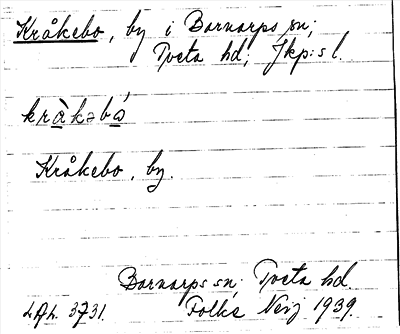 Kråkebo, by i Barnarps sn;
Tveta hd; Jkp:s l.
kràkəbó
Kråkebo, by.
Barnarps sn; Tveta hd.
Folke Nerj 1939.